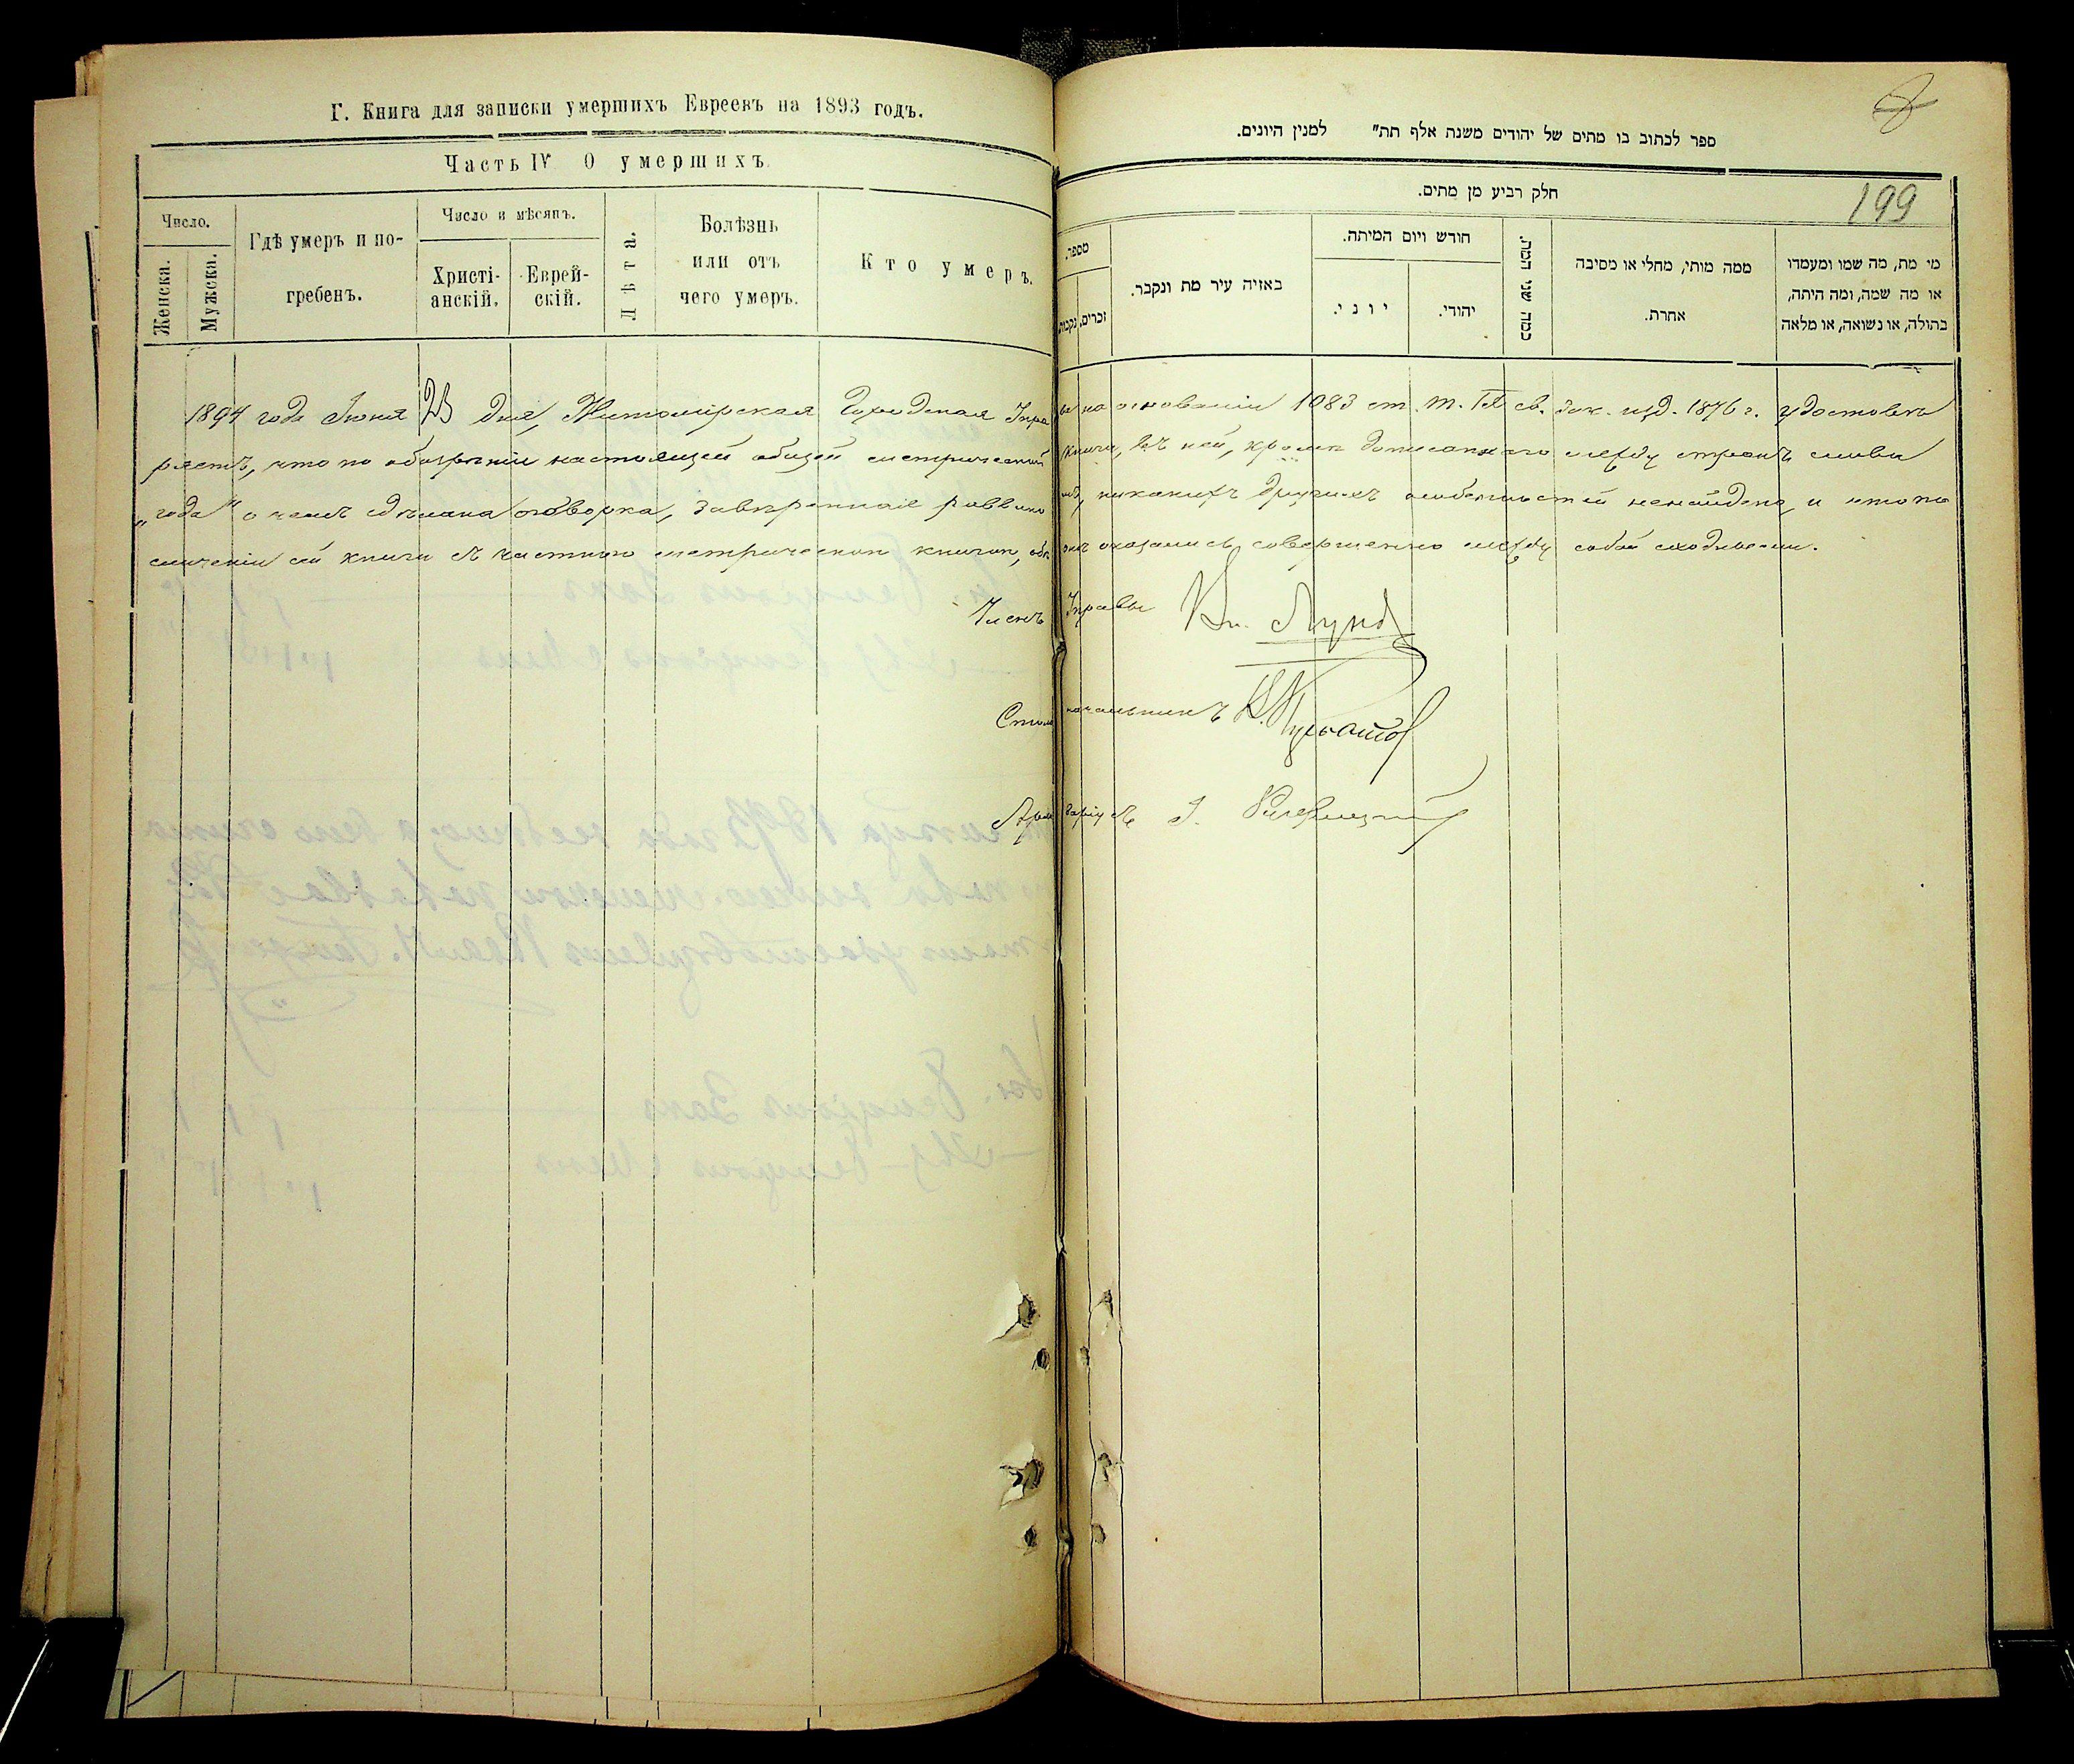 Г. Книга для записки умершихъ Евреевъ на 1893 годъ.
Часть IV О умершихъ
Число.
Женска.
Мужска.
Гдѣ умеръ и по-
гребенъ.
Число и мѣсяцъ.
Христі-
анскій.
Еврей-
скій.
Лѣта.
Болѣзнь
или отъ
чего умеръ.
Кто умеръ.
ספר לכתוב בו מתים של יהודים משנת אלף תת״ למנין היונים.
חלק רביע מן מתים.
199
מספר.
זכרים.
נקבות
באזיה עיר מת ונקבר.
חודש ויום המיתה.
יוני.
יהודי.
כמה שני המת.
ממה מותי, מחלי או מסיבה
אחרת.
מי מת, מה שמו ומעמדו
או מה שמה, ומה היתה,
בתולה, או נשואה, או מלאה
1894 года Іюня 23 дня, Житомірская Городская Управа на основаніи 1083 ст. т. IX св. зак. изд. 1876 г. удостовѣ
ряетъ, что по обозрѣніи настоящей общей метрической книги, въ ней, кромѣ дописаннаго между строкъ слова
„года" о чемъ сдѣлана оговорка, завѣренная раввиномъ, никакихъ другихъ особенностей ненайдено, и что по
сличеніи сей книги съ частною метрическою книгою, обѣ онѣ оказались совершенно между собой сходными.
Членъ Управы
Столоначальникъ